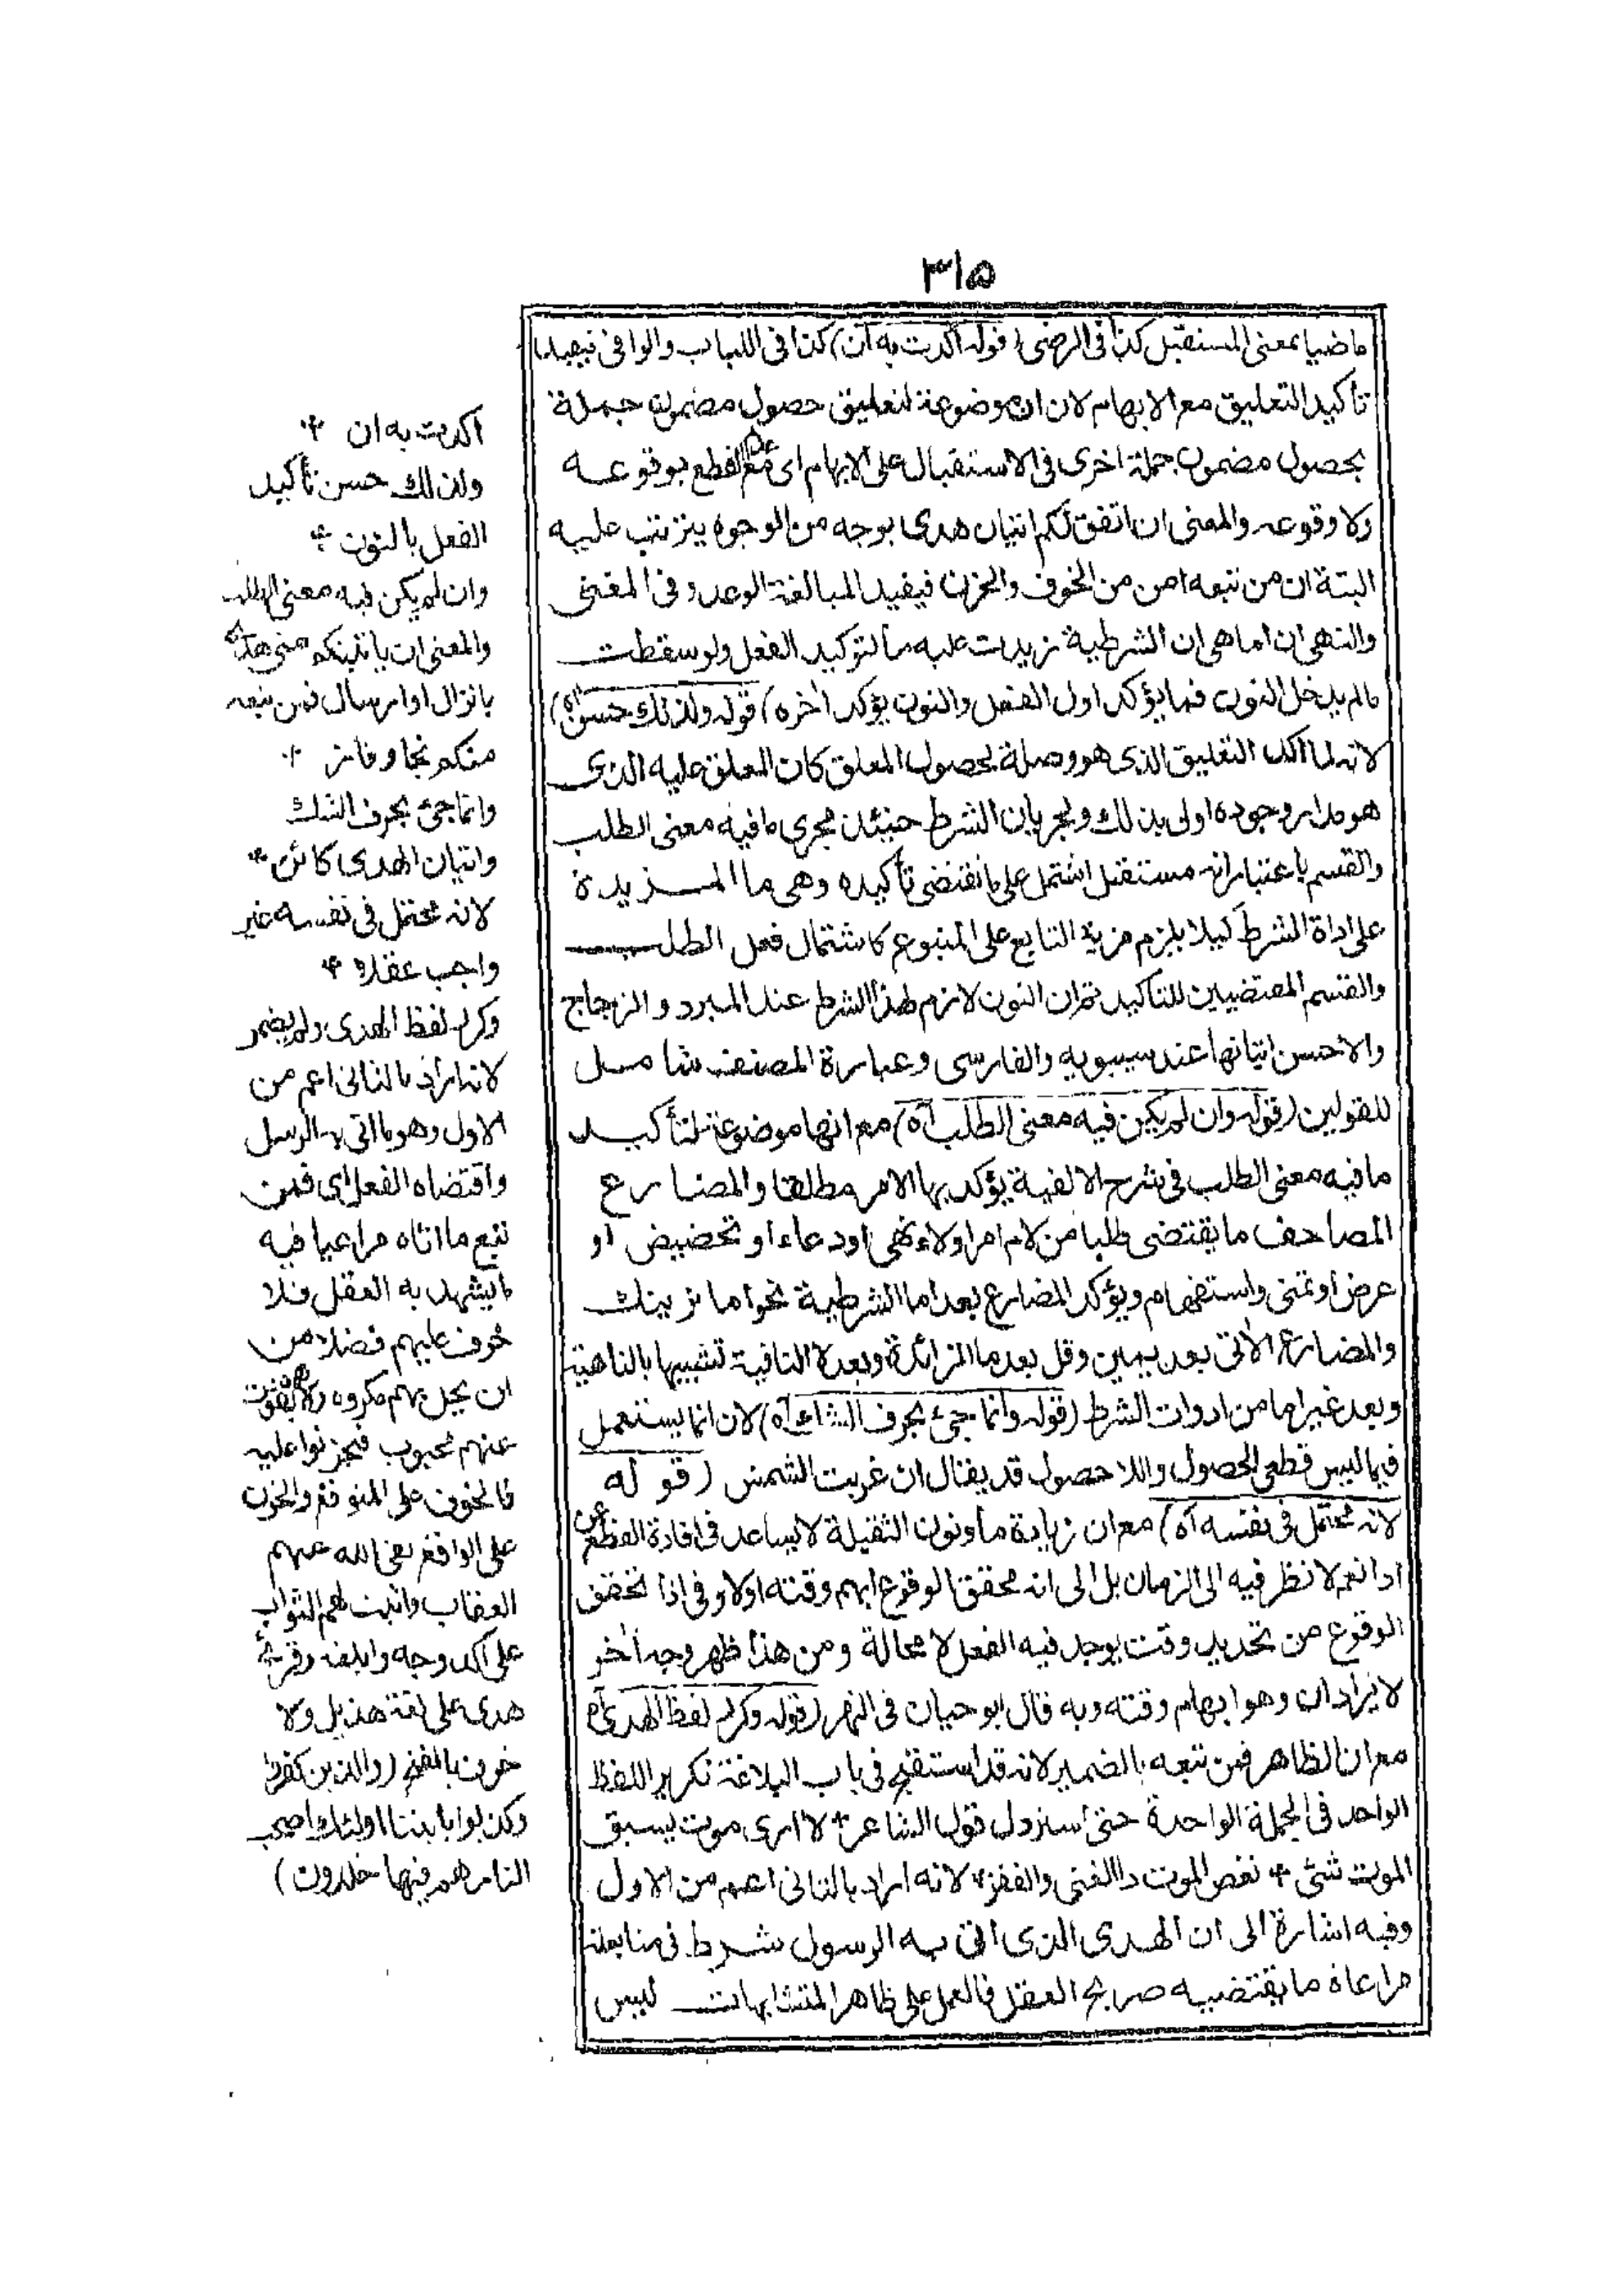 ٣١٥
ماضيا بمعنى المستقبل كذا فى الرضى (قوله اكدت به ان) كذا فى اللباب والوافى فيفيد
تأكيد التعليق مع الابهام لان ان موضوعة لتعليق حصول مضمون جملة
بحصول مضمون جملة اخرى فى الاستقبال على الابهام اى عدم القطع بوقوعه
ولا وقوعه والمعنى ان اتفق لكم اتيان هدى بوجه من الوجوه يترتب عليه
البتة ان من تبعه امن من الخوف والحزن فيفيد المبالغة الوعد وفى المغنى
والنهى ان اما هى ان الشرطية زيدت عليه ما لتوكيد الفعل ولو سقطت
مالم يدخل النون فما يؤكد اول الفعل والنون يؤكد اخره (قوله ولذلك حسن اه)
لانه لما اكد التعليق الذى هو وصلة لحصول المعلق كان المعلق عليه الذى
هو مدار وجوده اولى بذلك ولجريان الشرط حينئذ مجرى مافيه معنى الطلب
والقسم باعتبار انه مستقبل اشتمل على ما يقتضى تأكيده وهى ما المزيدة
على اداة الشرط كيلا يلزم مزية التابع على المتبوع كاشتمال فعل الطلب
والقسم المقتضيين للتاكيد ثم ان النون لازم لهذا الشرط عند المبرد والزجاج
والاحسن اتيانها عند سيبويه والفارسى وعبارة المصنف شامل
للقولين (قوله وان لم يكن فيه معنى الطلب آه) مع انها موضوعة لتأكيد
مافيه معنى الطلب فى شرح الالفية يؤكد بها الامر مطلقا والمضارع
المصاحف ما يقتضى طلبا من لام امر او لاء نهى او دعاء او تحضيض او
عرض او تمنى واستفهام ويؤكد المضارع بعد اما الشرطية نحو اما نرينك
والمضارع الآتى بعد يمين وقل بعد ما الزائدة وبعد لا النافية تشبيها بالناهية
وبعد غير اما من ادوات الشرط (قوله وانما جىء بحرف الشك آه) لان انما يستعمل
فيما ليس قطعى الحصول واللا حصول قد يقال ان غربت الشمس (قوله
لانه محتمل فى نفسه آه) مع ان زيادة ما ونون الثقيلة لا يساعد فى افادة القطع عن
اذا نعم لا نظر فيه الى الزمان بل الى انه محقق الوقوع ابهم وقته اولا وفى اذا تحقق
الوقوع من تحديد وقت يوجد فيه الفعل لا محالة ومن هذا ظهر وجه اخر
لايراد ان وهو ابهام وقته وبه قال ابو حيان فى النهر (قوله وكرر لفظ الهدى آه
مع ان الظاهر فمن تبعه بالضمير لانه قد استقبح فى باب البلاغة تكرير اللفظ
الواحد فى الجملة الواحدة حتى استرذل قول الشاعر لا ارى موت يسبق
الموت شئ نغص الموت ذا الغنى والفقر لانه اراد بالثانى اعم من الاول
وفيه اشارة الى ان الهدى الذى اتى به الرسول شرط فى متابعته
مراعاة ما يقتضيه صريح العقل فالعمل على ظاهر المتشابهات ليس
اكدت به ان
ولذلك حسن تأكيد
الفعل بالنون
وان لم يكن فيه معنى الطلب
والمعنى ان ياتينكم منى هدى
بانزال او ارسال فمن تبعه
منكم نجا وفاز
وانما جئ بحرف الشك
واتيان الهدى كائن
لانه محتمل فى نفسه غير
واجب عقلا
وكرر لفظ الهدى ولم يضمر
لانه اراد بالثانى اعم من
الاول وهو ما اتى به الرسل
واقتضاه الفعل اى فمن
تبع ما اتاه مراعيا فيه
مايشهد به العقل فلا
خوف عليهم فضلا من
ان يحل بهم مكروه ولا يفوت
عنهم محبوب فيحزنوا عليه
فالخوف على المتوقع والحزن
على الواقع نفى الله عنهم
العقاب واثبت لهم الثواب
على آكد وجه وابلغه وقرئ
هدى على لغة هذيل ولا
خوف بالفتح (والذين كفروا
وكذبوا بايتنا اولئك اصحب
النار هم فيها خلدون)